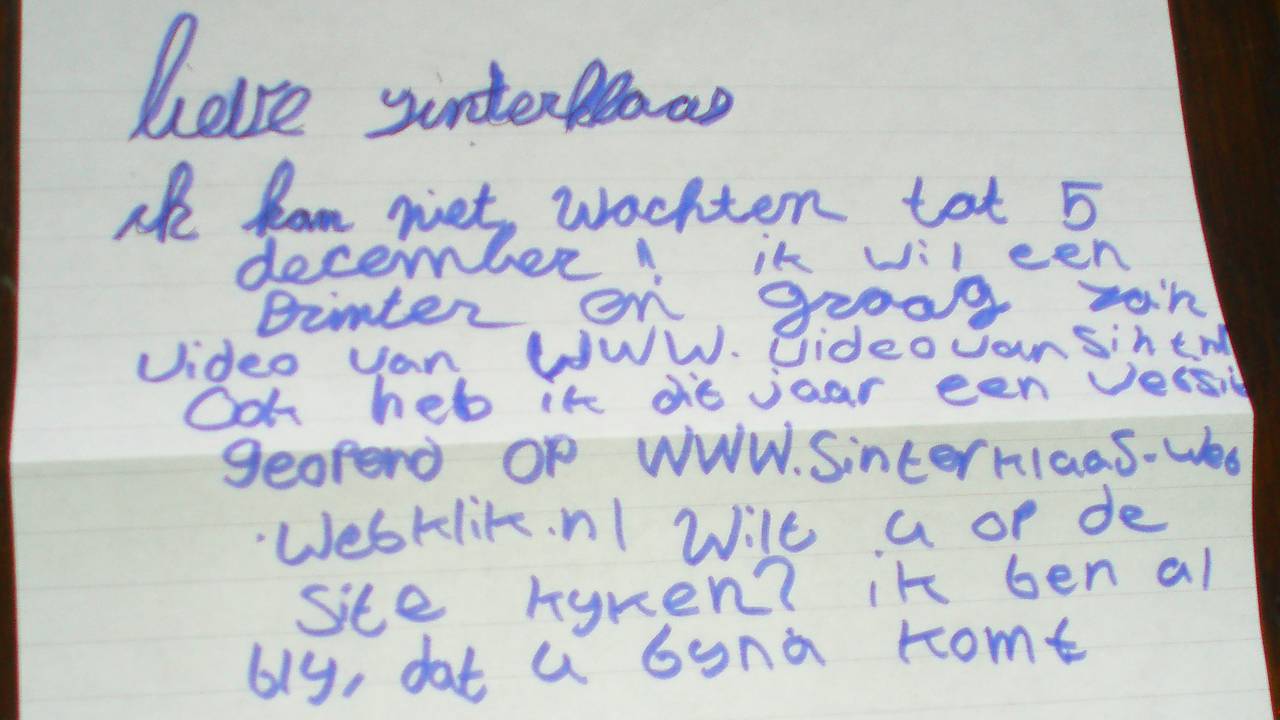 lieve sinterklaas
ik kan niet wachten tot 5
december! ik wil een
Printer en graag zo'n
video van WWW.videovansint.nl
Ook heb ik dit jaar een
geopend op WWW.Sinterklaas-web
.webklik.nl Wilt u op de
site kyken? ik ben al
bly, dat u byna komt